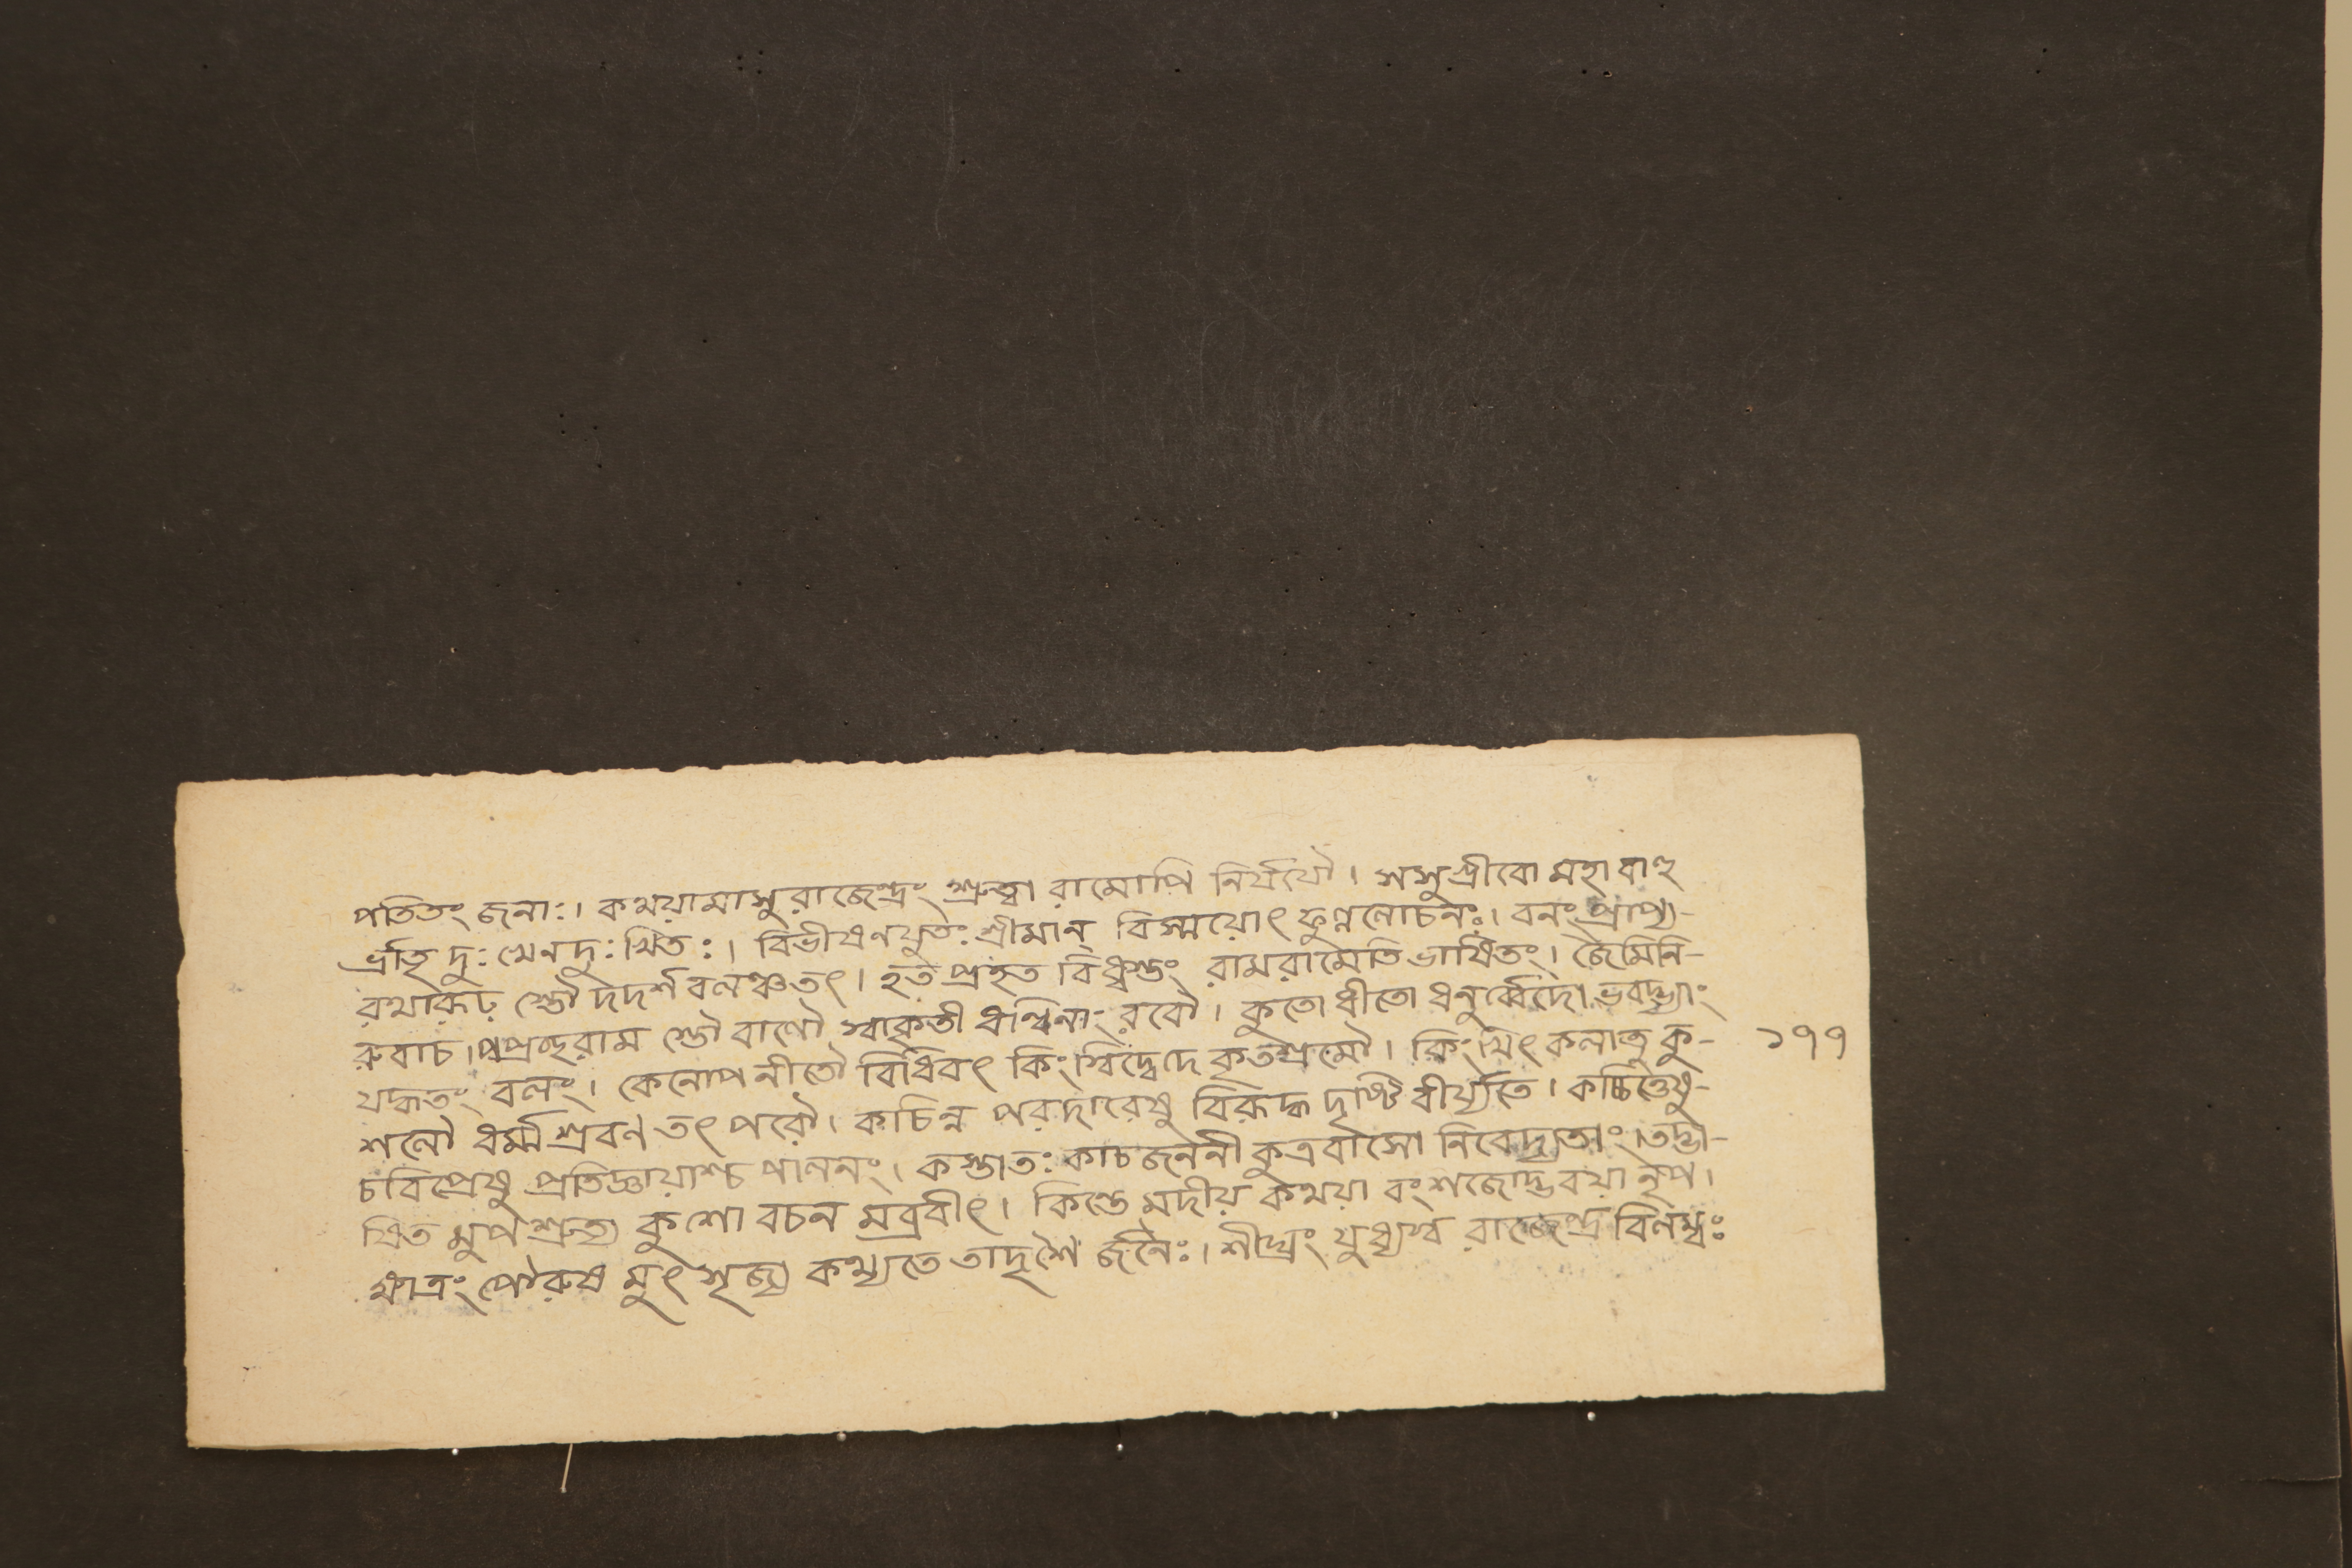 পতিতং জনাঃ। কথয়ামাসু রাজেন্দ্রং শ্রুত্বা রামোপি নির্যযৌ। সসুগ্রীবো মহাবাহু
র্ভ্রাতৃ দুঃখেন দুঃখিতঃ। বিভীষণযুতঃ শ্রীমান্ বিস্ময়োৎ ফুল্ললোচনঃ। বনং প্রাপ্য-
রথারূঢ় স্তৌ দদর্শ বলঞ্চতৎ। হত প্রহত বিধ্বস্তং রামরামেতি ভাষিতং। জৈমিনি-
রুবাচ। পপ্রচ্ছ রাম স্তৌ বালৌ স্বাকৃতী ধন্বিনাং বরৌ। কুতো ধীতো ধনুর্ব্বেদো ভবদ্ভ্যাং
যদ্ধতং বলং। কেনোপনীতৌ বিধিবৎ কিংস্বিদ্বেদে কৃতশ্রমৌ। কিংস্বিৎ কলাসু কু- ১৭৭
শলৌ ধর্ম্ম শ্রবণ তৎপরৌ। কচিন্ন পরদারেষু বিরূদ্ধ দৃষ্টি র্বীর্য্যতে। কচ্চিত্তেষু-
চবিপ্রেষু প্রতিজ্ঞায়াশ্চ পালনং। কস্তাতঃ কাচজননী কুত্রবাসো নিবেদ্যতাং। তদ্ভা-
ষিত মুপশ্রুত্য কুশো বচন মব্রবীৎ। কিন্তে মদীয় কথয়া বংশজোদ্ভবয়া নৃপ।
ক্ষাত্রং পৌরুষ মুৎসৃজ্য কথ্যতে তাদৃশৈ র্জনৈঃ। শীঘ্রং যুধ্যস্ব রাজেন্দ্র বিলম্বঃ